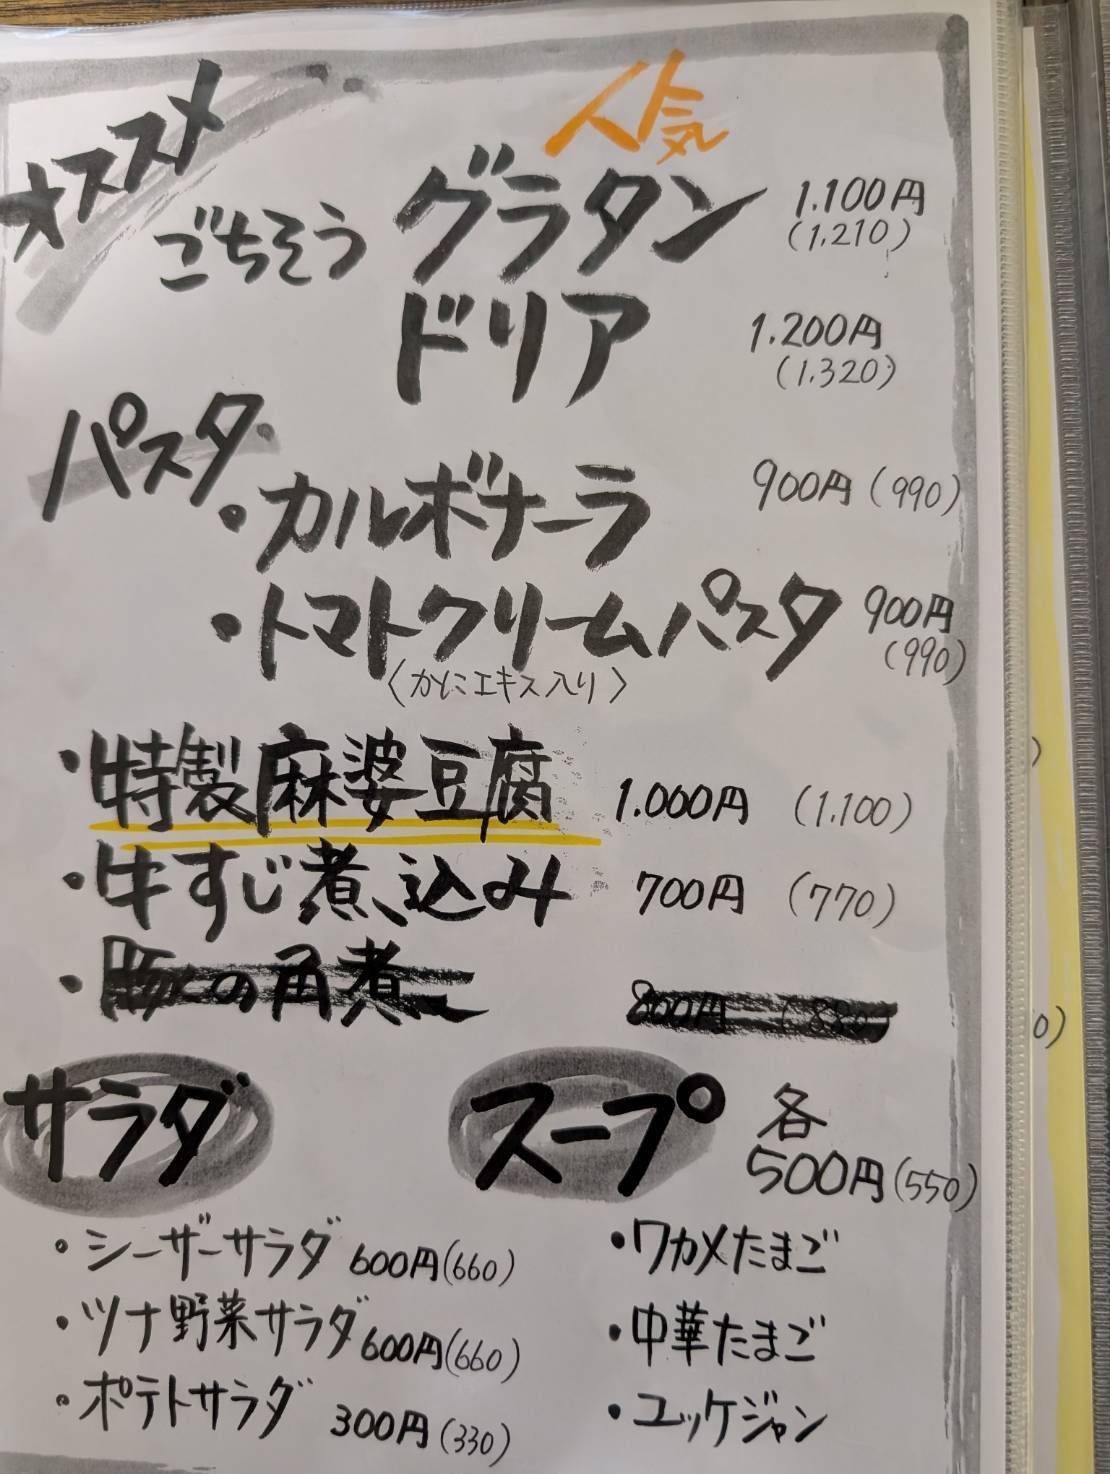 オススメ
人気
ごちそう グラタン 1.100円
(1.210)
ドリア 1.200円
(1.320)
パスタ
・カルボナーラ 900円(990)
・トマトクリームパスタ 900円
(990)
〈かにエキス入り〉
・特製麻婆豆腐 1.000円 (1.100)
・牛すじ煮込み 700円 (770)
・豚の角煮 800円 (880)
サラダ
・シーザーサラダ 600円(660)
・ツナ野菜サラダ 600円(660)
・ポテトサラダ 300円(330)
スープ 各
500円(550)
・ワカメたまご
・中華たまご
・ユッケジャン